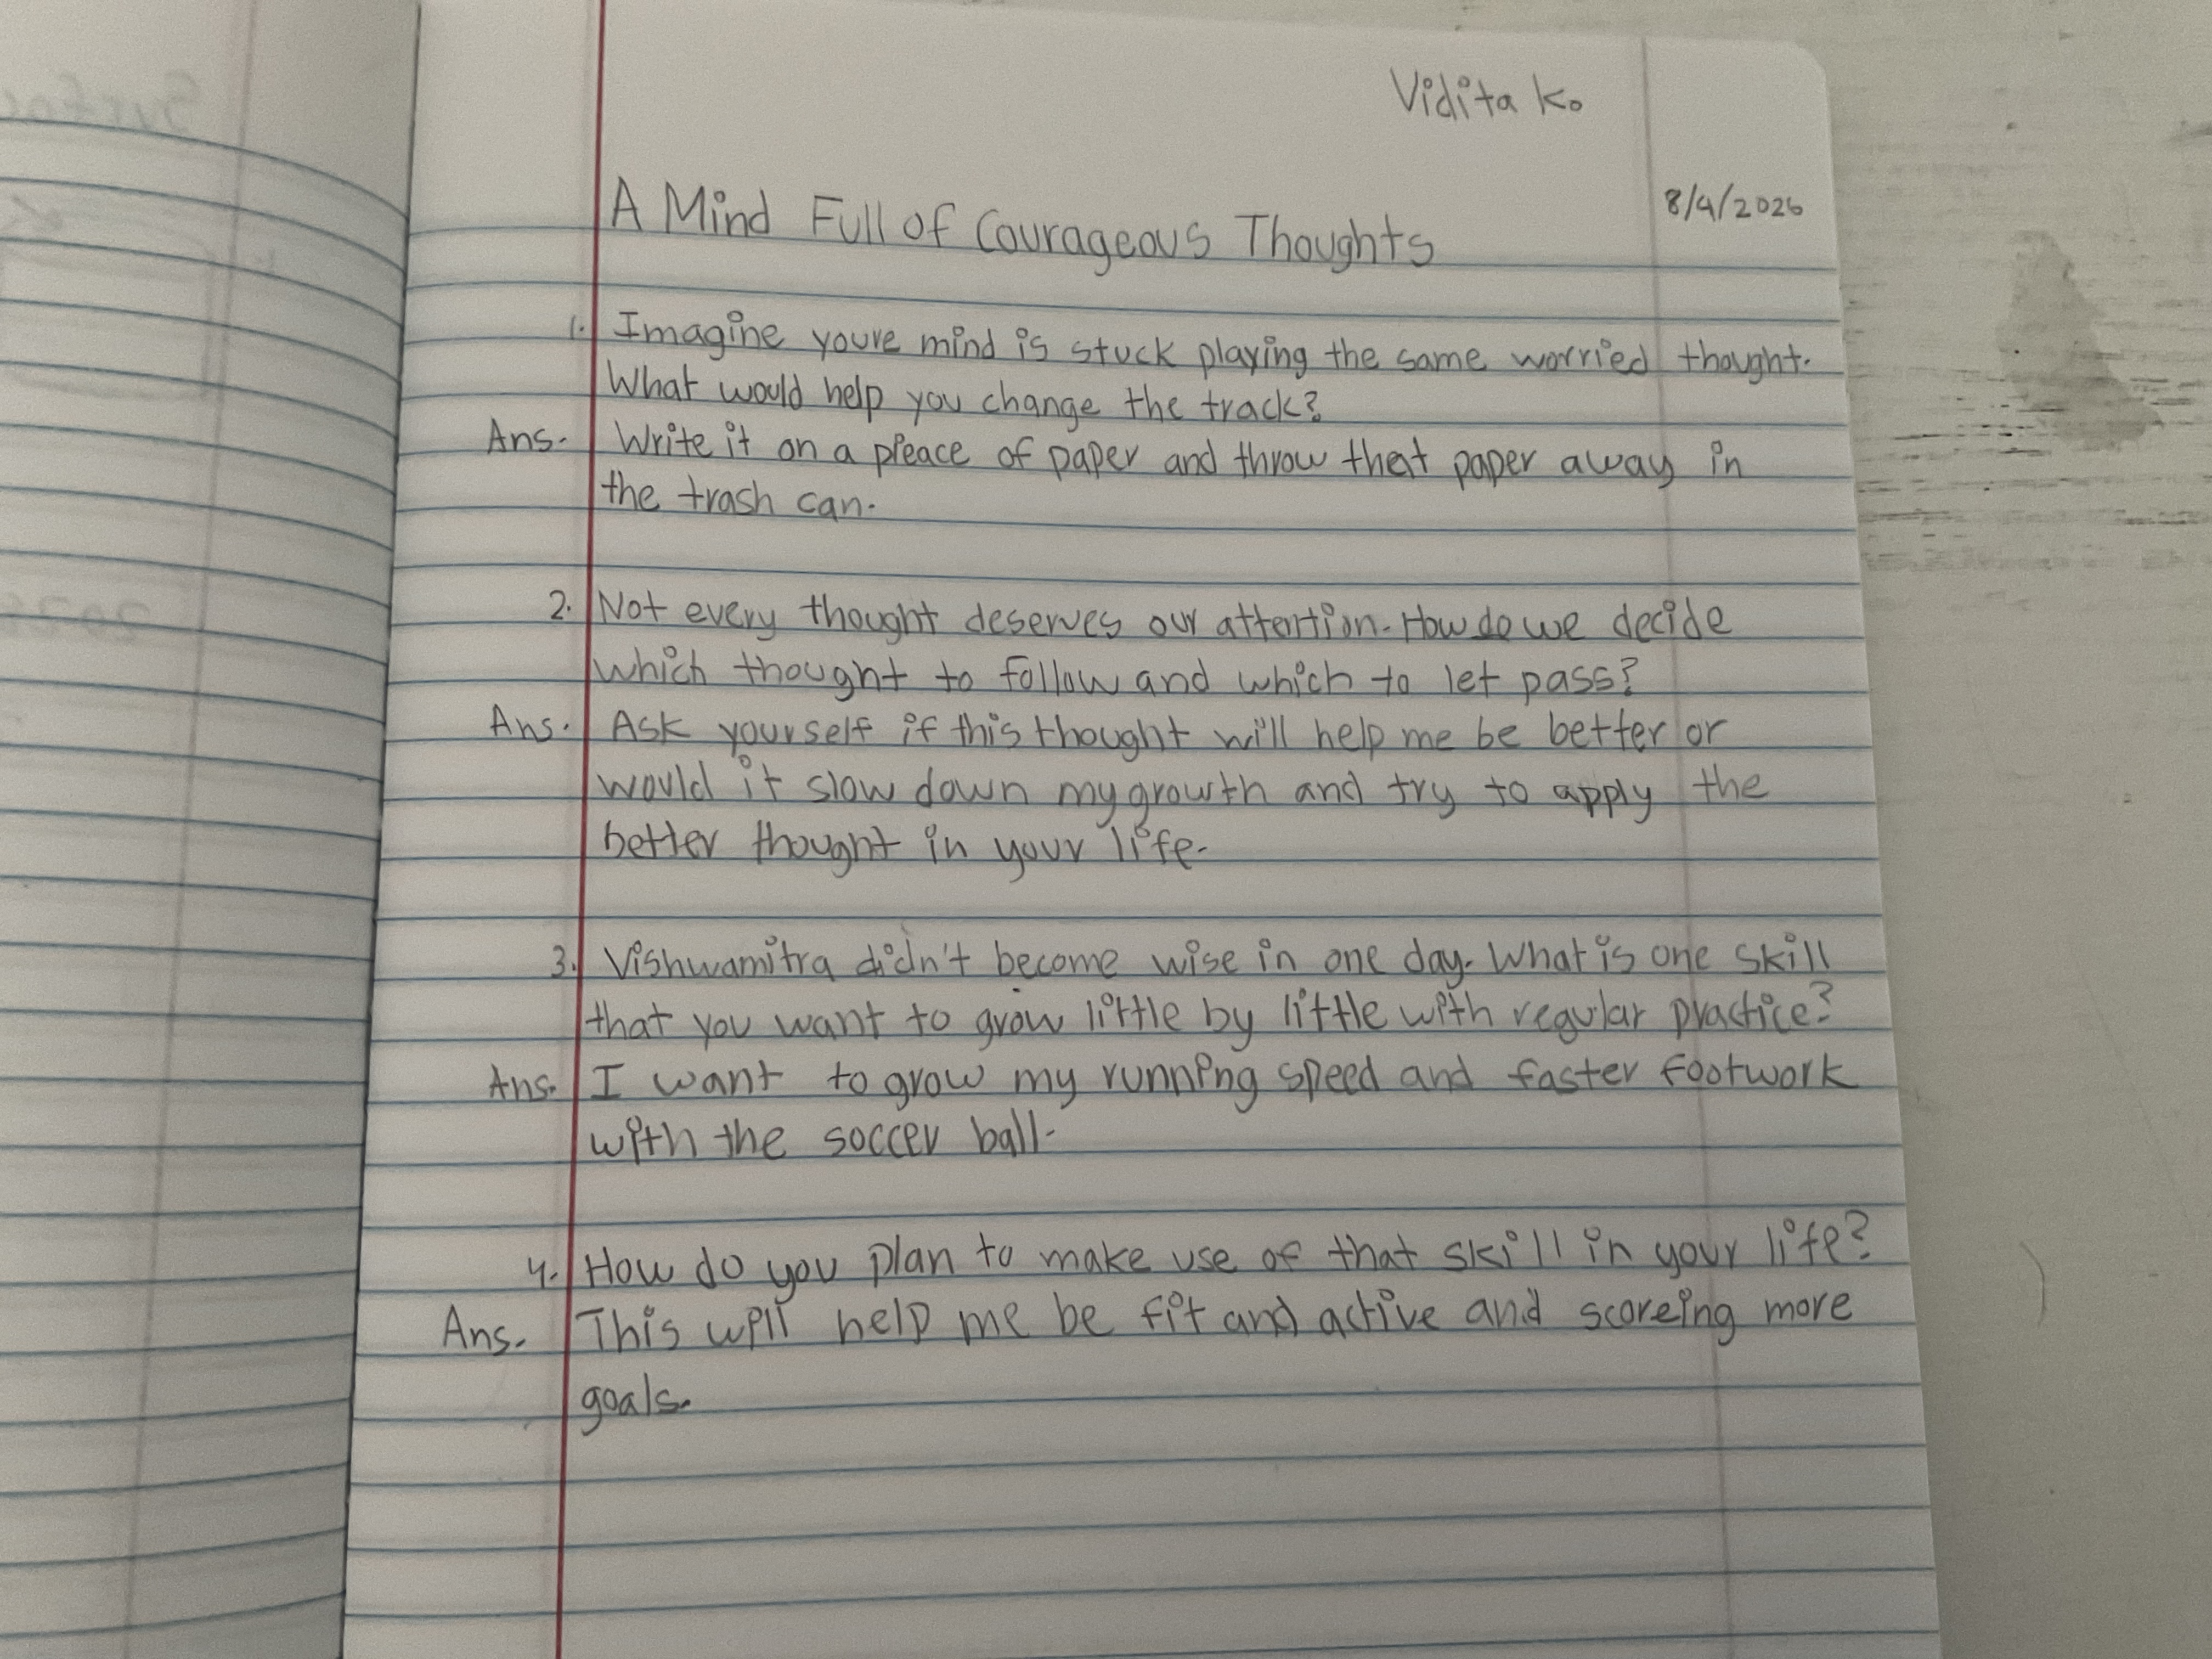 Vidita K.
A Mind Full of Courageous Thoughts
8/4/2026
1. Imagine youre mind is stuck playing the same worried thought.
What would help you change the track?
Ans. Write it on a pieace of paper and throw that paper away in
the trash can.
2. Not every thought deserves our attention. How do we decide
which thought to follow and which to let pass?
Ans. Ask yourself if this thought will help me be better or
would it slow down my growth and try to apply the
better thought in your life.
3. Vishwamitra didn't become wise in one day. What is one skill
that you want to grow little by little with regular practice?
Ans. I want to grow my running speed and faster footwork
with the soccer ball.
4. How do you plan to make use of that skill in your life?
Ans. This will help me be fit and active and scoreing more
goals.